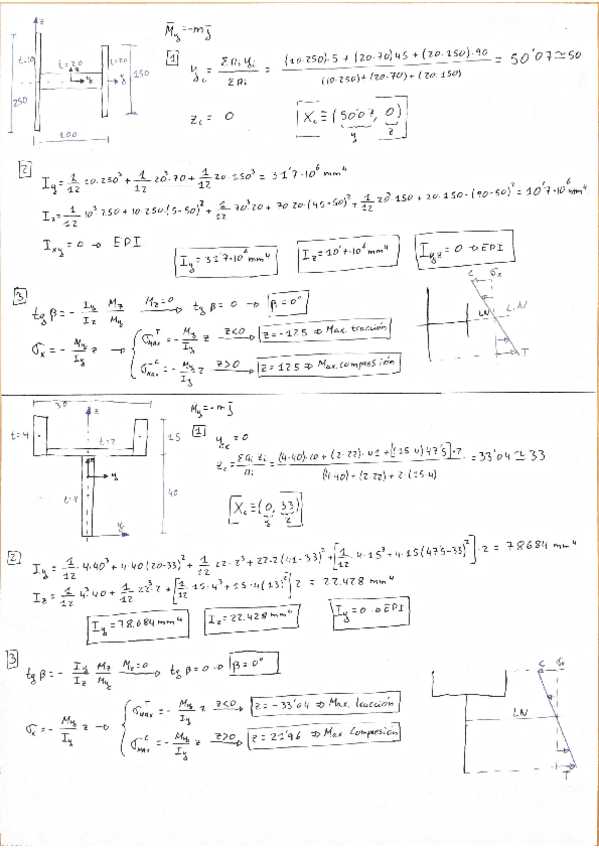 z
M̄y = -m j̄
t=10
t=20
t=20
y
y
150
250
100
[1] yc = ΣAi yi / ΣAi = ((10·250)·5 + (20·70)45 + (20·150)·90) / ((10·250)+(20·70)+(20·150)) = 50'07 ≃ 50
zc = 0
Xc ≡ (50'07, 0)
y z
[2] Iy = 1/12 10·250³ + 1/12 20³·70 + 1/12 20·150³ = 31'7·10⁶ mm⁴
Iz = 1/12 10³ 250 + 10·250(5-50)² + 1/12 70³ 20 + 70·20·(45-50)² + 1/12 20³ 150 + 20·150·(90-50)² = 10'7·10⁶ mm⁴
Ixy = 0 → EPI
Iy = 31'7·10⁶ mm⁴
Iz = 10'7·10⁶ mm⁴
Iyz = 0 → EPI
[3] tg β = - Iy/Iz Mz/My Mz=0 → tg β = 0 → β = 0°
σx = - My/Iy z → σMAX^T = - My/Iy z z<0 → z = -125 ⇒ Max. tracción
σMAX^C = - My/Iy z z>0 → z = 125 ⇒ Max. compresión
C σx
LN
T
30
z
M̄y = -m j̄
t=4
t=2
15
y
40
[1] yc = 0
zc = ΣAi zi / Ai = ((4·40)·20 + (2·22)·41 + [(15·4)47'5]·2) / ((4·40) + (2·22) + 2·(15·4)) = 33'04 ≃ 33
Xc ≡ (0, 33)
y z
[2] Iy = 1/12 · 4·40³ + 4·40(20-33)² + 1/12 22·2³ + 22·2(41-33)² + [1/12 4·15³ + 4·15(47'5-33)²]·2 = 78684 mm⁴
Iz = 1/12 4³ 40 + 1/12 22³ 2 + [1/12 15·4³ + 15·4(13)²] 2 = 22.428 mm⁴
Iy = 78.684 mm⁴
Iz = 22.428 mm⁴
= 0 → EPI
[3] tg β = - Iy/Iz Mz/My Mz=0 → tg β = 0 → β = 0°
σx = - My/Iy z → σMAX^T = - My/Iy z z<0 → z = -33'04 ⇒ Max. tracción
σMAX^C = - My/Iy z z>0 → z = 21'96 ⇒ Max. Compresión
C σx
LN
T